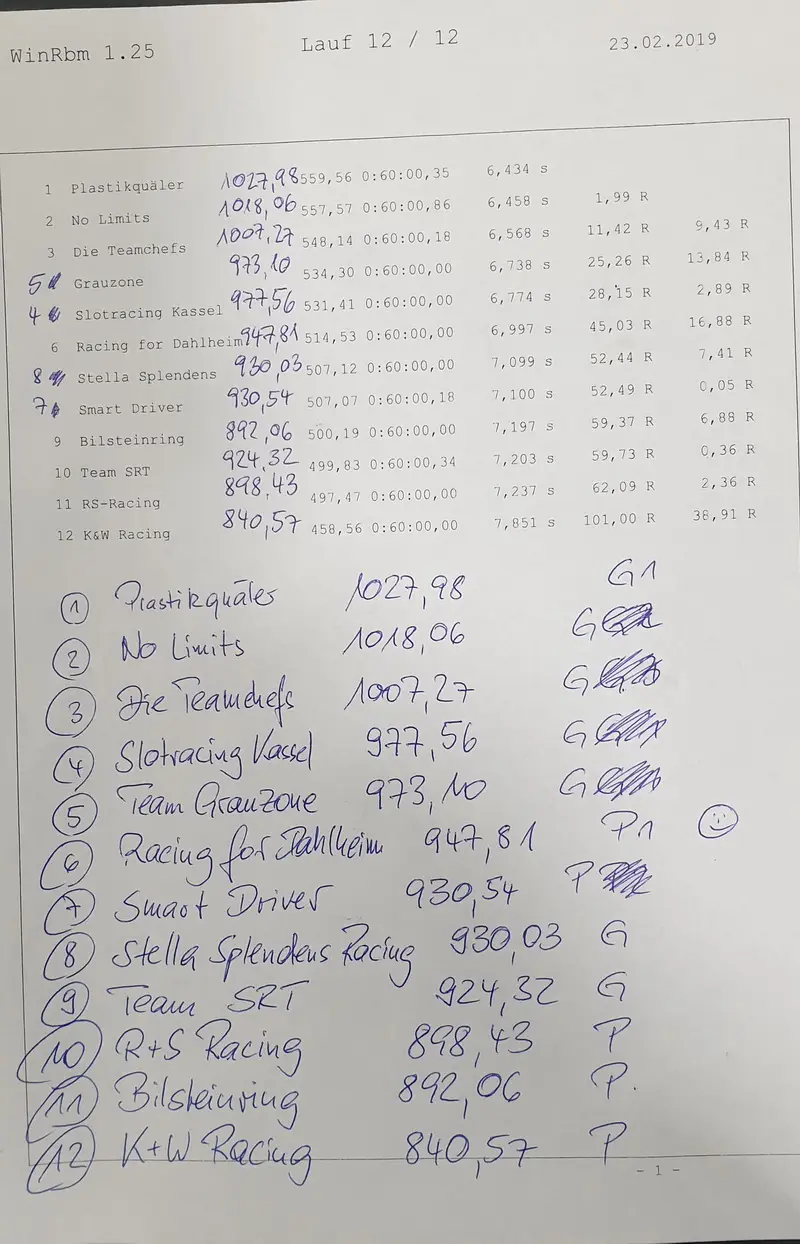 WinRbm 1.25 Lauf 12 / 12 23.02.2019
1 Plastikquäler 1027,98 559,56 0:60:00,35 6,434 s
2 No Limits 1018,06 557,57 0:60:00,86 6,458 s 1,99 R
3 Die Teamchefs 1007,27 548,14 0:60:00,18 6,568 s 11,42 R 9,43 R
5 Grauzone 973,10 534,30 0:60:00,00 6,738 s 25,26 R 13,84 R
4 Slotracing Kassel 977,56 531,41 0:60:00,00 6,774 s 28,15 R 2,89 R
6 Racing for Dahlheim 947,81 514,53 0:60:00,00 6,997 s 45,03 R 16,88 R
8 Stella Splendens 930,03 507,12 0:60:00,00 7,099 s 52,44 R 7,41 R
7 Smart Driver 930,54 507,07 0:60:00,18 7,100 s 52,49 R 0,05 R
9 Bilsteinring 892,06 500,19 0:60:00,00 7,197 s 59,37 R 6,88 R
10 Team SRT 924,32 499,83 0:60:00,34 7,203 s 59,73 R 0,36 R
11 RS-Racing 898,43 497,47 0:60:00,00 7,237 s 62,09 R 2,36 R
12 K&W Racing 840,57 458,56 0:60:00,00 7,851 s 101,00 R 38,91 R
1 Plastikquäler 1027,98 G1
2 No Limits 1018,06 G
3 Die Teamchefs 1007,27 G
4 Slotracing Kassel 977,56 G
5 Team Grauzone 973,10 G
6 Racing for Dahlheim 947,81 P1
7 Smart Driver 930,54 P
8 Stella Splendens Racing 930,03 G
9 Team SRT 924,32 G
10 R+S Racing 898,43 P
11 Bilsteinring 892,06 P.
12 K+W Racing 840,57 P
- 1 -